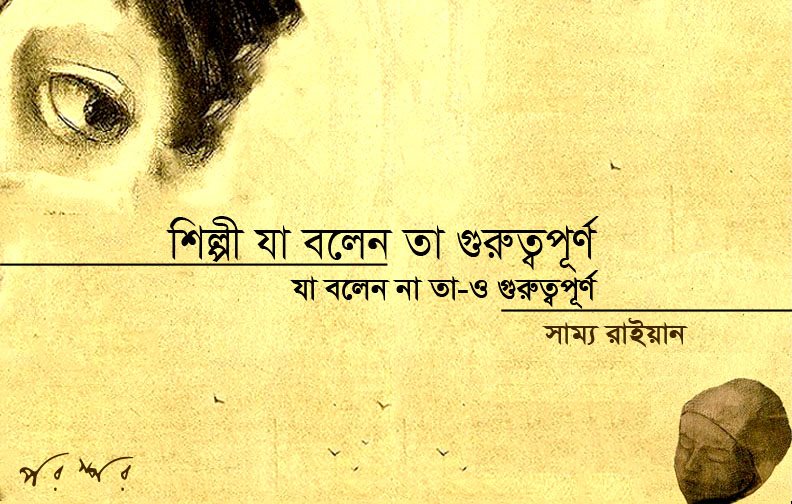 শিল্পী যা বলেন তা গুরুত্বপূর্ণ
যা বলেন না তা-ও গুরুত্বপূর্ণ
সাম্য রাইয়ান
পরস্পর